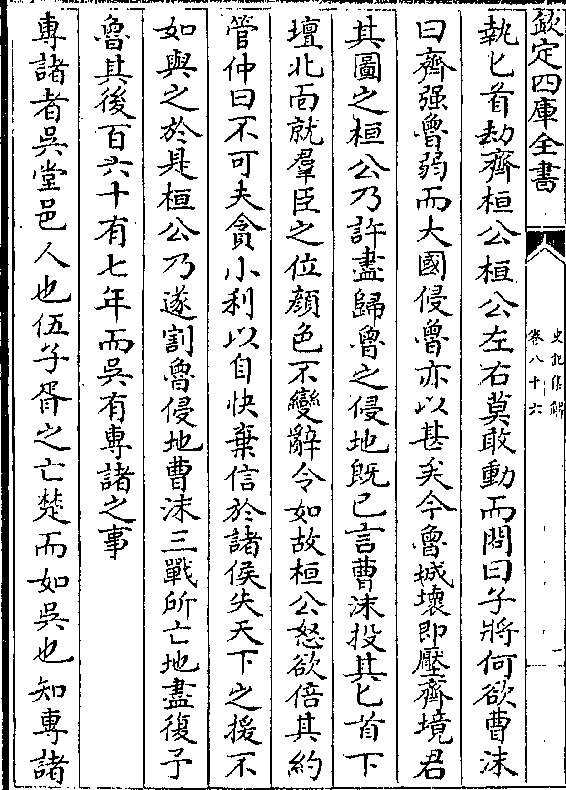 欽定四庫全書
史記集解
卷八十六
執匕首劫齊桓公桓公左右莫敢動而問曰子將何欲曹沫
曰齊强魯弱而大國侵魯亦以甚矣今魯城壞即壓齊境君
其圖之桓公乃許盡歸魯之侵地既已言曹沫投其匕首下
壇北面就羣臣之位顔色不變辭令如故桓公怒欲倍其約
管仲曰不可夫貪小利以自快棄信於諸侯失天下之援不
如與之於是桓公乃遂割魯侵地曹沫三戰所亡地盡復予
魯其後百六十有七年而吳有専諸之事
専諸者吳堂邑人也伍子胥之亡楚而如吳也知専諸